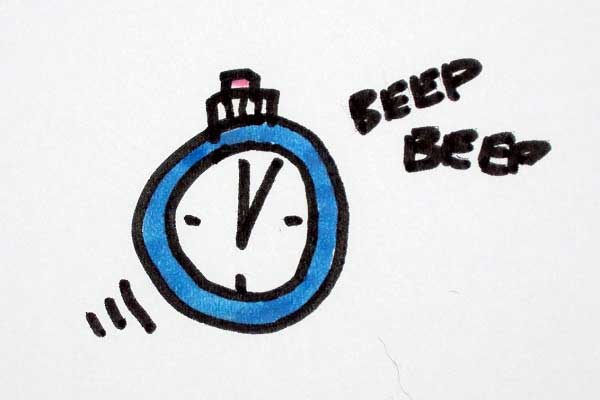 BEEP
BEEP